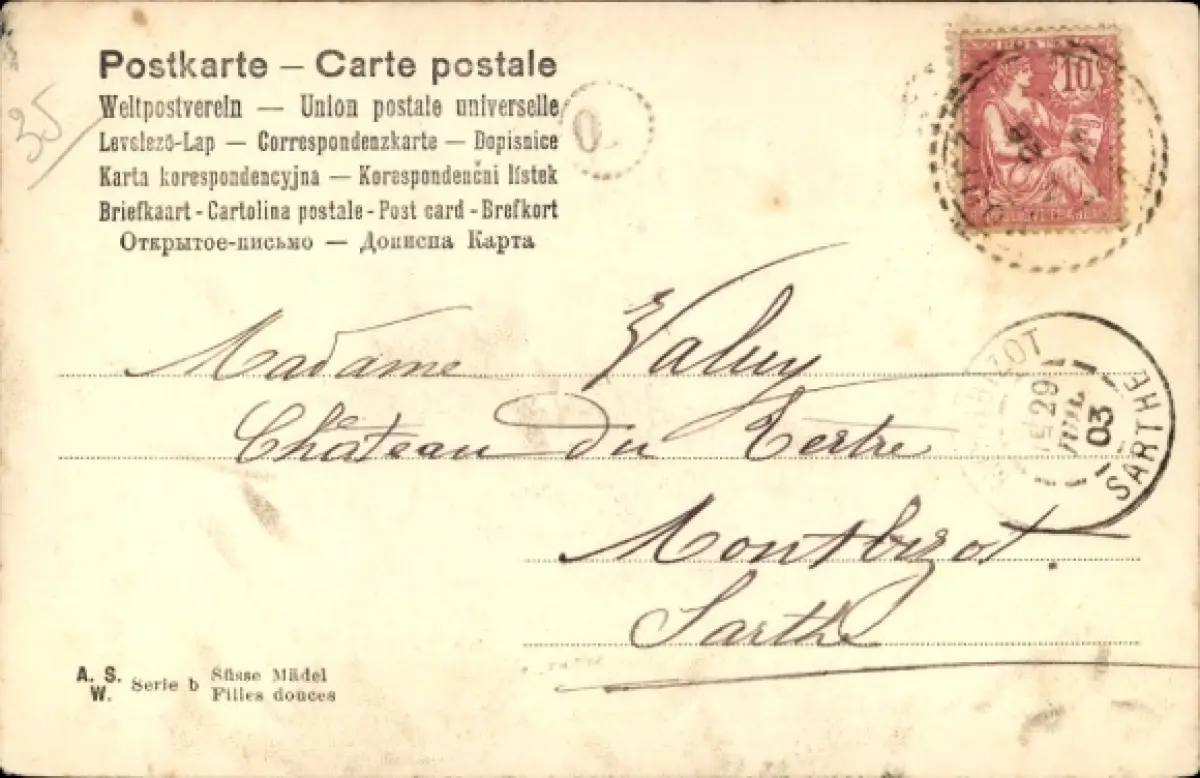 Postkarte – Carte postale
Weltpostverein — Union postale universelle
Levelező-Lap — Correspondenzkarte — Dopisnice
Karta korespondencyjna — Korespondenčni lístek
Briefkaart - Cartolina postale - Post card - Brefkort
Открытое-письмо — Дописна Карта
35
O
10
Madame Valuy
Château du Tertre
Montbizot.
Sarthe
29
JUIL
03
SARTHE
A. S. W. Serie b Süsse Mädel
Filles douces